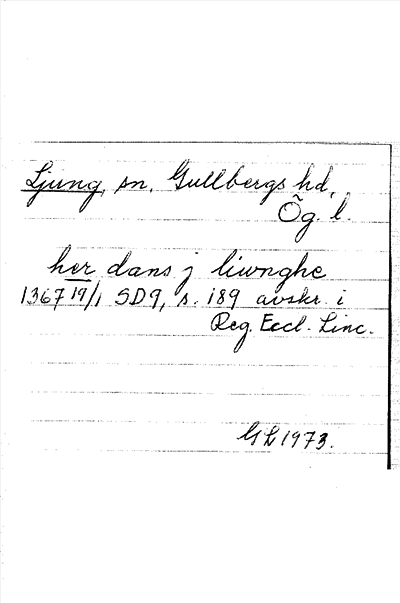 Ljung, sn, Gullbergs hd,
Ög. l.
her dans j liwnghe
1367 19/1 SD9, s. 189 avskr. i
Reg. Eccl. Linc.
GL 1973.